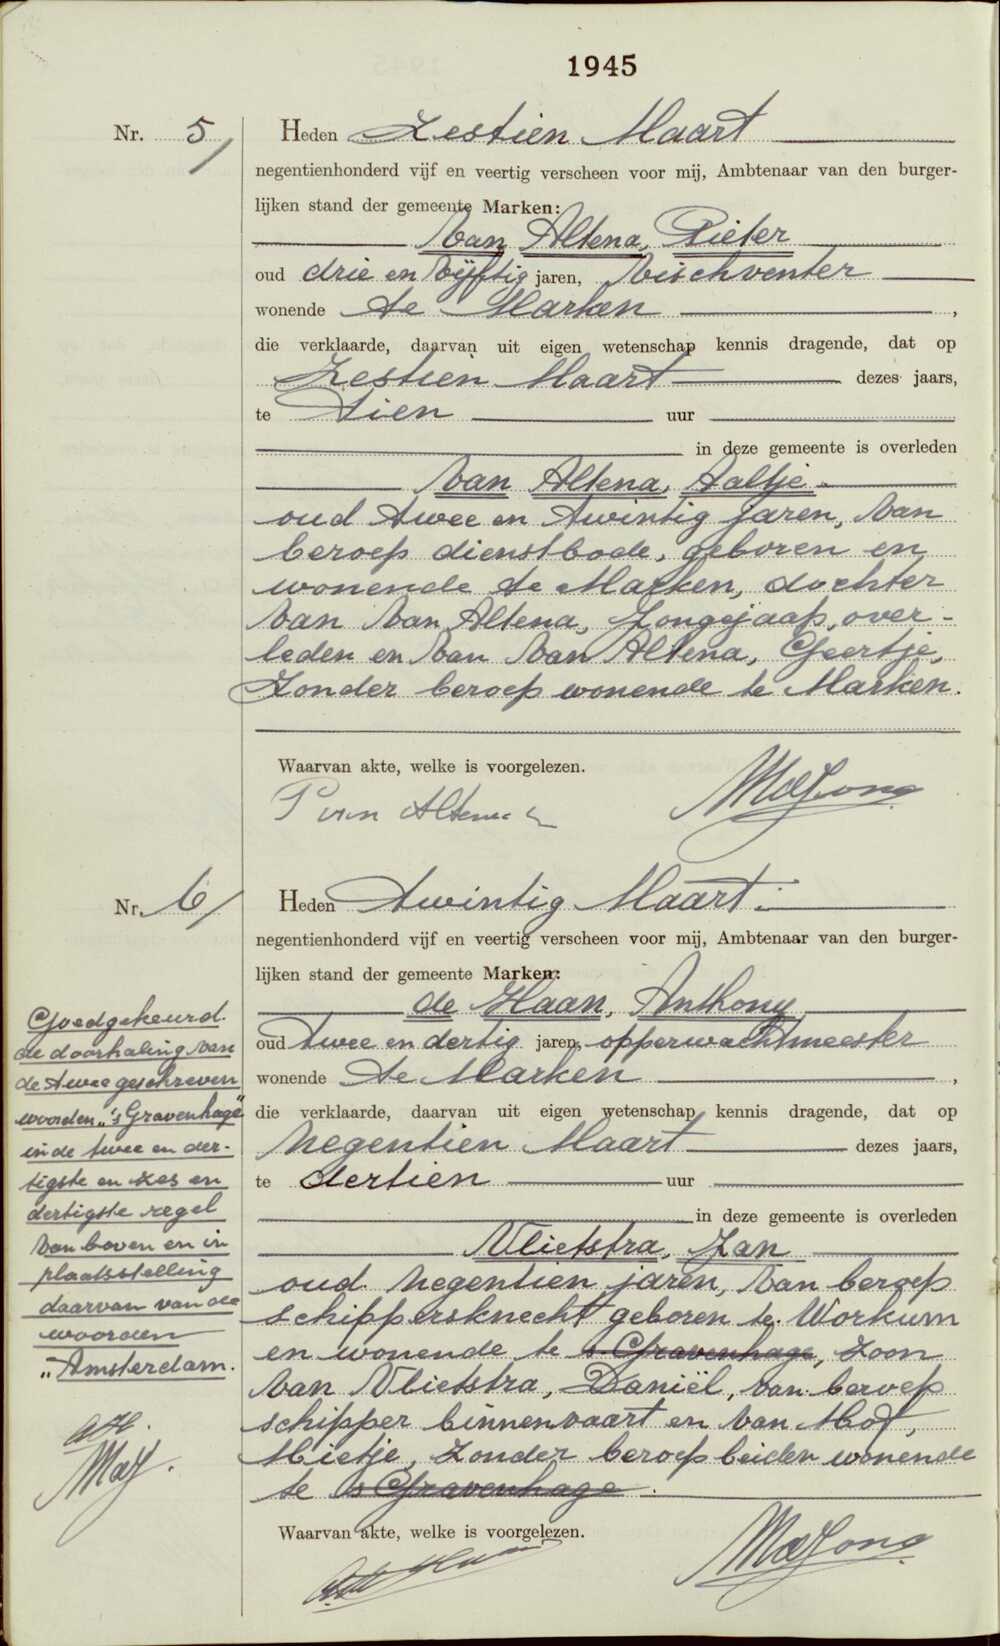 1945
Nr. 5
Heden Zestien Maart
negentienhonderd vijf en veertig verscheen voor mij, Ambtenaar van den burger-
lijken stand der gemeente Marken:
Van Altena, Pieter
oud drie en vijftig jaren, vischventer
wonende te Marken,
die verklaarde, daarvan uit eigen wetenschap kennis dragende, dat op
Zestien Maart dezes jaars,
te tien uur
in deze gemeente is overleden
Van Altena, Aaltje.
oud twee en twintig jaren, van
beroep dienstbode, geboren en
wonende te Marken, dochter
van Van Altena, Jongejaap, over-
leden en van Van Altena, Geertje,
Zonder beroep wonende te Marken.
Waarvan akte, welke is voorgelezen.
P van Altena
Nr. 6
Heden Twintig Maart.
negentienhonderd vijf en veertig verscheen voor mij, Ambtenaar van den burger-
lijken stand der gemeente Marken:
de Haan, Anthony
oud twee en dertig jaren, opperwachtmeester
wonende te Marken,
die verklaarde, daarvan uit eigen wetenschap kennis dragende, dat op
negentien Maart dezes jaars,
te dertien uur
in deze gemeente is overleden
Vlietstra, Jan
oud negentien jaren, van beroep
schippersknecht geboren te Workum
en wonende te 's Gravenhage, zoon
van Vlietstra, Daniël, van beroep
schipper binnenvaart en van Mot,
Mietje, zonder beroep beiden wonende
te 's Gravenhage.
Waarvan akte, welke is voorgelezen.
Goedgekeurd
de doorhaling van
de twee geschreven
woorden „'s Gravenhage"
in de twee en der-
tigste en zes en
dertigste regel
van boven en in
plaatsstelling
daarvan van de
woorden
„Amsterdam.